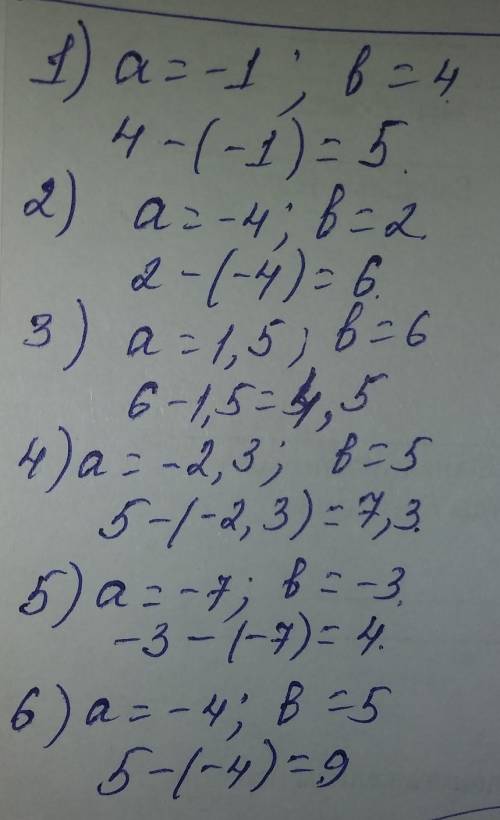 1) a = -1 ; в = 4.
4 - (-1) = 5.
2) a = -4; в = 2.
2 - (-4) = 6.
3) a = 1,5; в = 6
6 - 1,5 = 4,5
4) a = -2,3; в = 5
5 - (-2,3) = 7,3.
5) a = -7; в = -3.
-3 - (-7) = 4.
6) a = -4; в = 5
5 - (-4) = 9